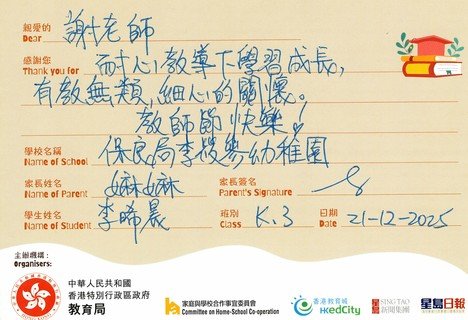 親愛的 Dear 謝老師
感謝您 Thank you for 耐心教導下學習成長,
有教無類,細心的關懷。
教師節快樂!
學校名稱 Name of School 保良局李俊駒幼稚園
家長姓名 Name of Parent 嫲嫲 家長簽名 Parent's Signature
學生姓名 Name of Student 李晞晨 班別 Class K.3 日期 Date 21-12-2025
主辦機構:
Organisers:
中華人民共和國
香港特別行政區政府
教育局
家庭與學校合作事宜委員會
Committee on Home-School Co-operation
香港教育城
HKedCity
星島 SING TAO
新聞集團
星島日報